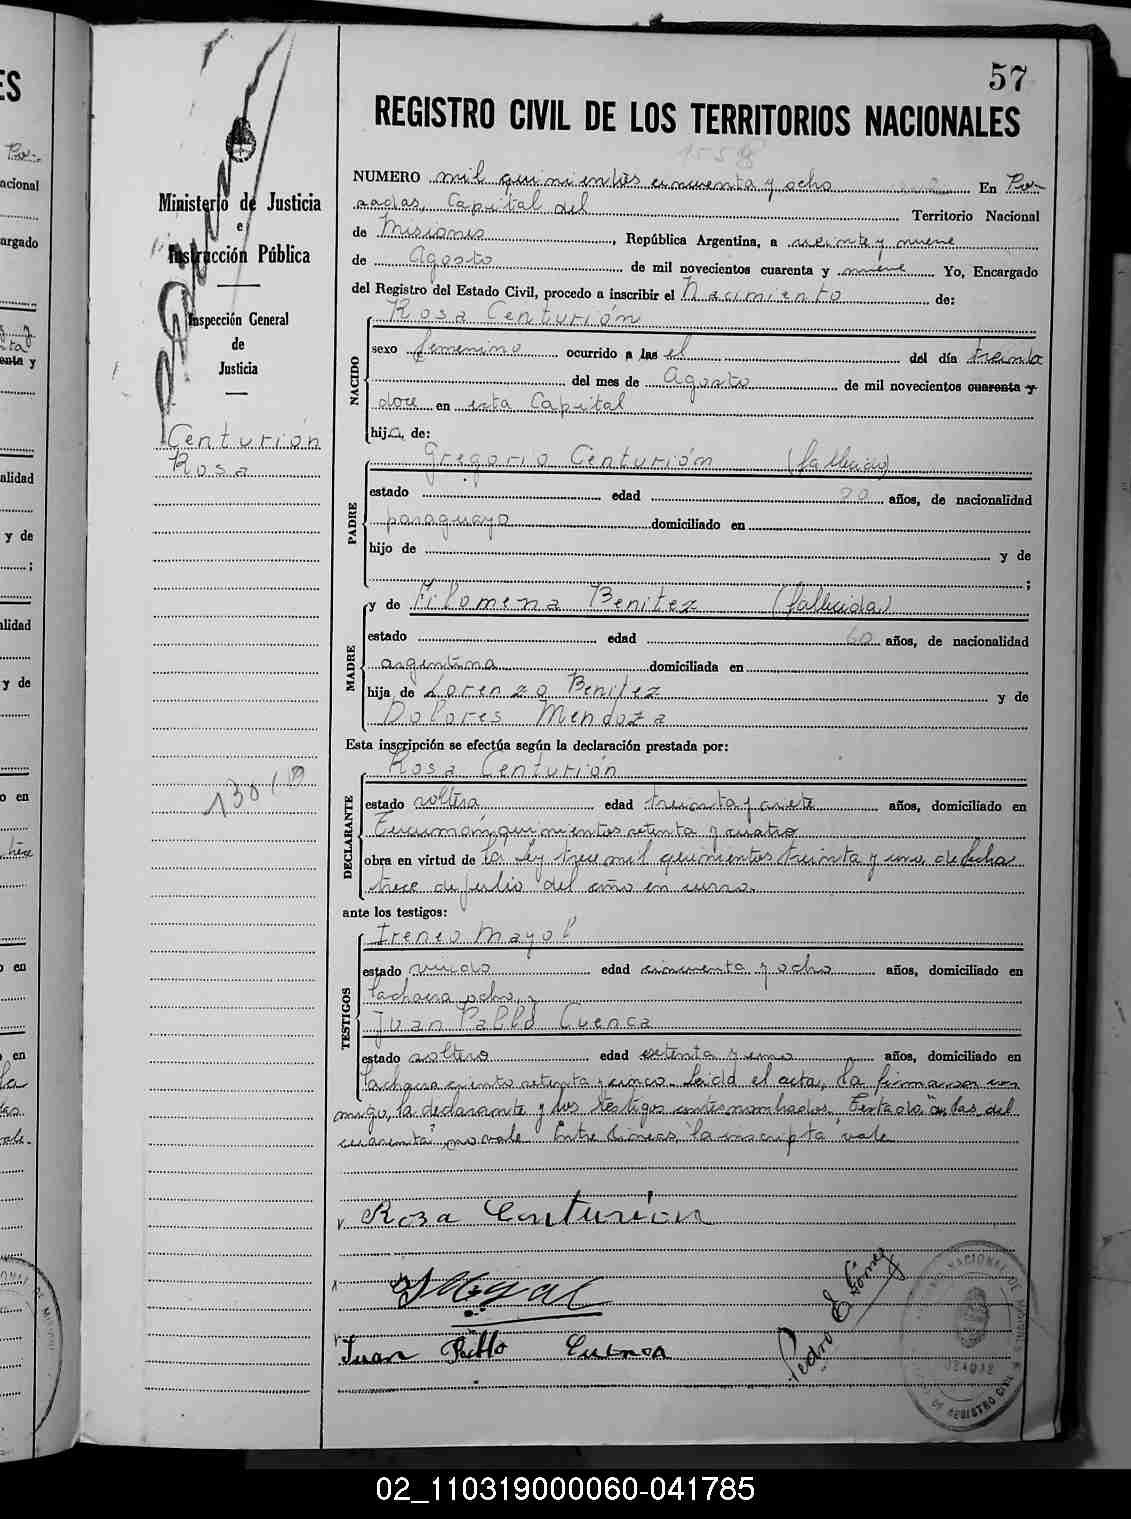 57
REGISTRO CIVIL DE LOS TERRITORIOS NACIONALES
1558
NUMERO mil quinientos cincuenta y ocho En Po-
sadas, Capital del Territorio Nacional
de Misiones, República Argentina, a veinte y nueve
de Agosto de mil novecientos cuarenta y nueve Yo, Encargado
del Registro del Estado Civil, procedo a inscribir el Nacimiento de:
Rosa Centurión
NACIDO
sexo femenino ocurrido a las el del día treinta
del mes de Agosto de mil novecientos cuarenta y
doce en esta Capital
hija, de:
Gregorio Centurión (fallecido)
PADRE
estado edad años, de nacionalidad
paraguaya domiciliado en
hijo de y de
;
y de Filomena Benitez (fallecida)
MADRE
estado edad 60 años, de nacionalidad
argentina domiciliada en
hija de Lorenzo Benitez y de
Dolores Mendoza
Esta inscripción se efectúa según la declaración prestada por:
Rosa Centurión
DECLARANTE
estado soltera edad treinta y siete años, domiciliado en
Tucumán quinientos setenta y cuatro
obra en virtud de la Ley trece mil quinientos treinta y uno de fecha
trece de julio del año en curso.
ante los testigos:
Ireneo Mayol
TESTIGOS
estado viudo edad cincuenta y ocho años, domiciliado en
lachacra ocho, y
Juan Pablo Cuenca
estado soltero edad setenta y uno años, domiciliado en
lachacra ciento setenta y cinco. Leida el acta, la firmaron con
migo, la declarante y los testigos antes nombrados. Testado "a las del
cuarenta" no vale. Entre lineas, "la inscripta" vale
Rosa Centurion
Juan Pablo Cuenca
Pedro E Gómez
Ministerio de Justicia
e
Instrucción Pública
Inspección General
de
Justicia
Centurión
Rosa
02_110319000060-041785